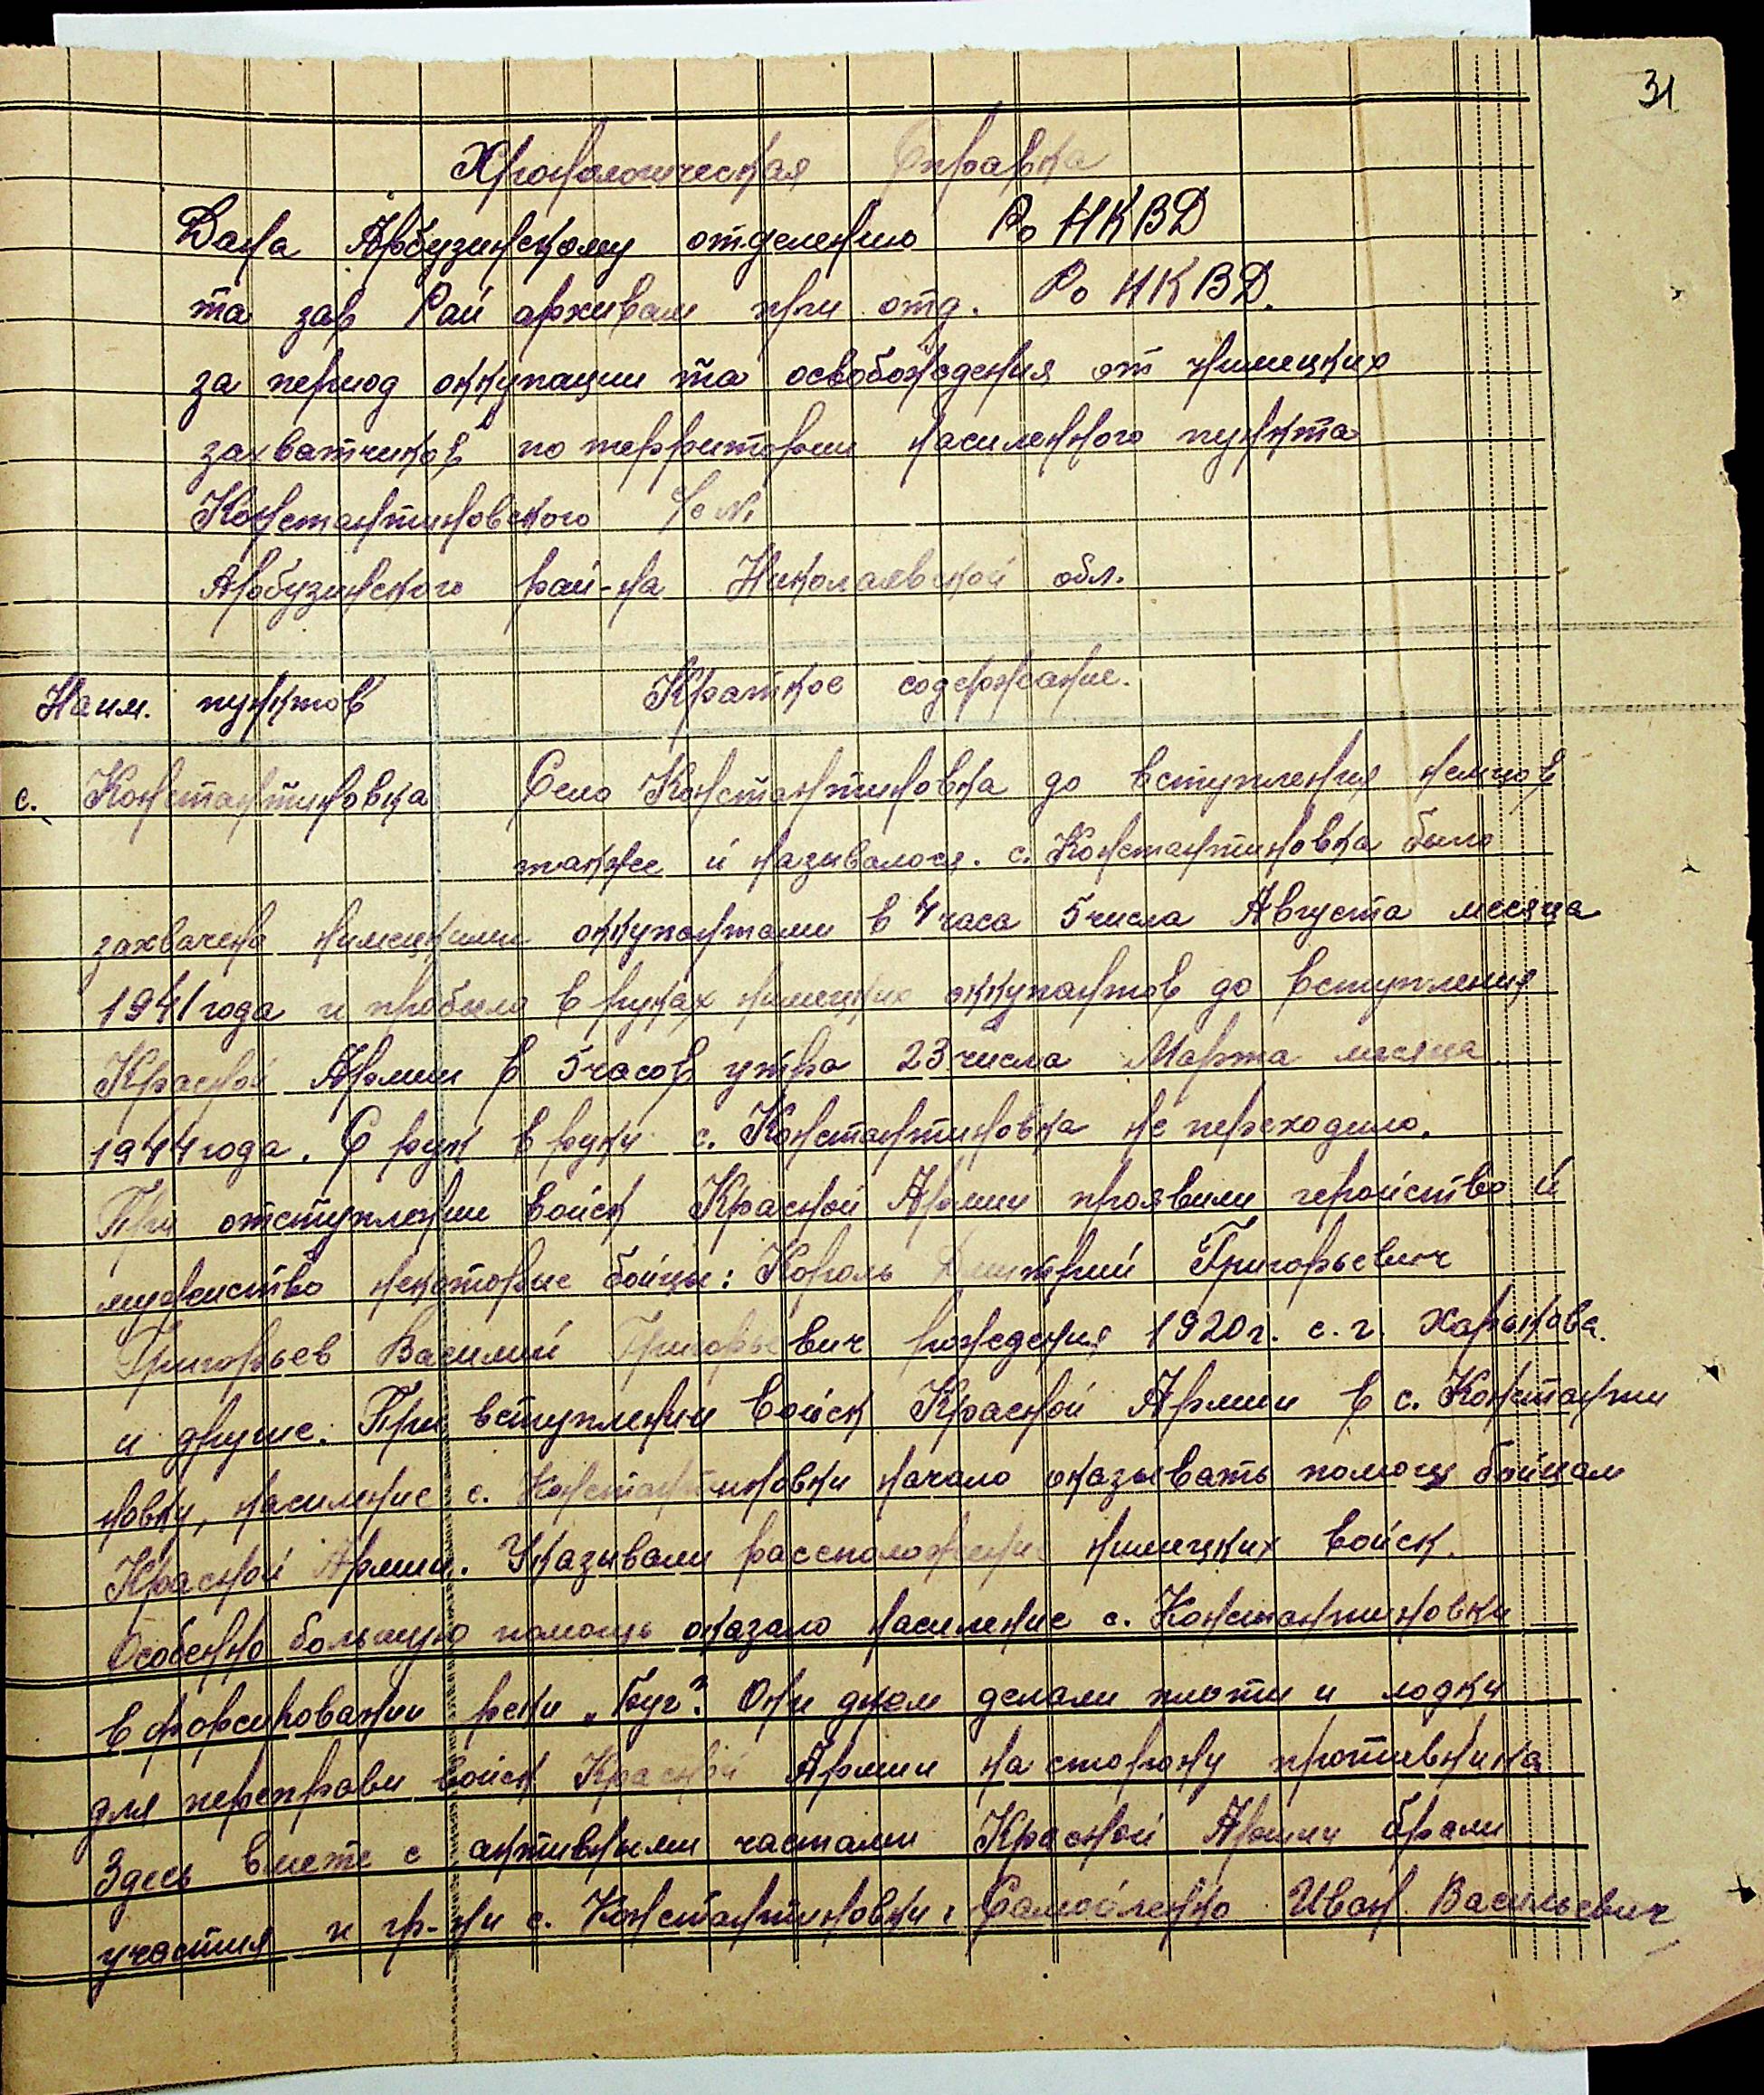 31
Хронологическая Справка
Дана Арбузинскому отделению Ро НКВД
та зав Рай архивам при отд. Ро НКВД.
за период оккупации та освобождения от нимецких
захватчиков по территории насиленного пункта
Константиновского
Арбузинского рай-на Николаевской обл.
Наим. пунктов Краткое содержание.
с. Константиновка Село Константиновка до вступления немцов
также и называлося. с. Константиновка было
захвачена нимецкими оккупантами в 4 часа 5 числа Августа месяца
1941 года и пробыла в руках нимецких оккупантов до вступления
Красной Армии в 5 часов утра 23 числа Марта месяца
1944 года. С рук в руки с. Константиновка не переходило.
При отступлении войск Красной Армии проявили геройство и
мужество некоторые бойцы: Король Дмитрий Григорьевич
Григорьев Василий Григорьевич рождения 1920 г. с. г. Харькова.
и другие. При вступлении войск Красной Армии в с. Константи
новку, насиление с. Константиновки начало оказывать помощ бойцам
Красной Армии. Указывали рассположение нимецких войск.
Особенно большую помощь оказало насиление с. Константиновки
в форсировании реки „Буг". Они днем делали плоти и лодки
для переправи войск Красной Армии на сторону противника
Здесь вмете с активными частами Красной Армии брали
участия и гр-ни с. Константиновки: Самойленко Иван Васильевич